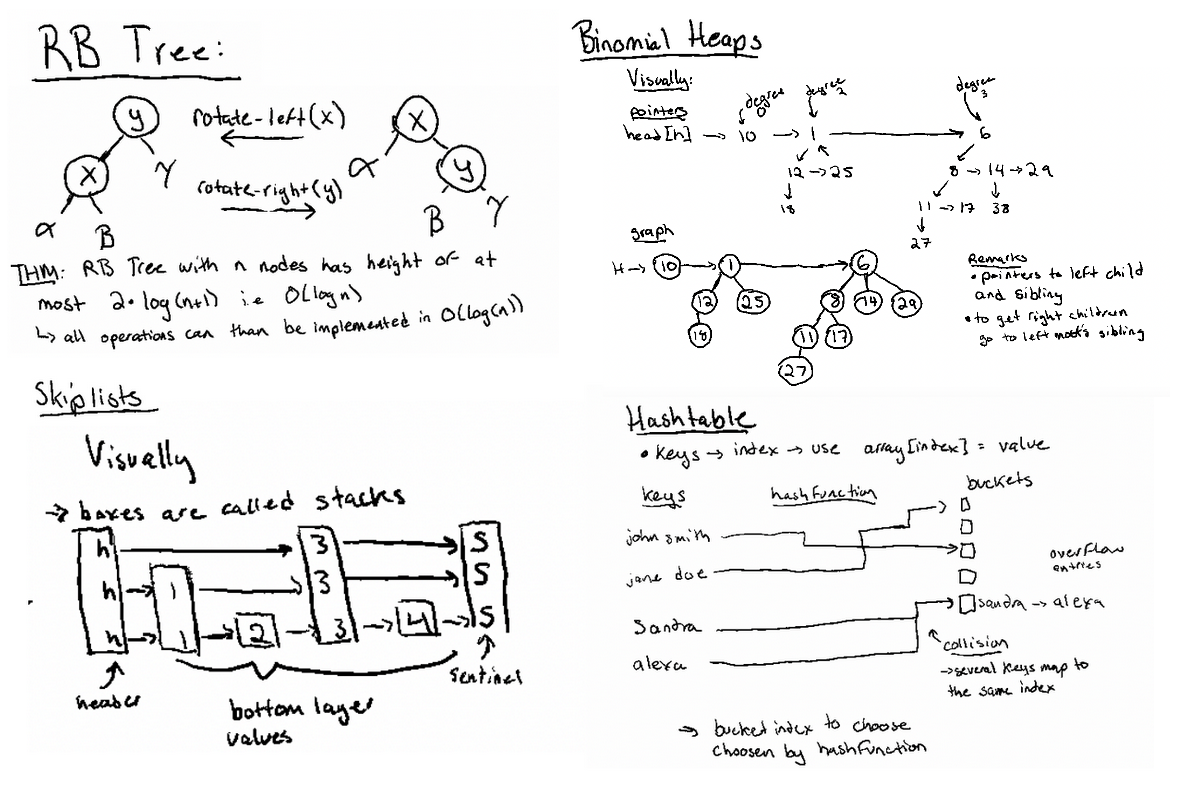 RB Tree:
y rotate-left(x) x
x γ α y
rotate-right(y)
α B B γ
THM: RB Tree with n nodes has height of at
most 2•log(n+1) i.e O(logn)
↳ all operations can than be implemented in O(log(n))
Binomial Heaps
Visually:
degree 0 degree 2 degree 3
pointers
head[h] → 10 → 1 → 6
12 → 25 8 → 14 → 29
18 11 → 17 38
27
graph
H → 10 1 6
12 25 8 14 29
18 11 17
27
Remarks
• pointers to left child
and sibling
• to get right children
go to left node's sibling
Skiplists
Visually
→ boxes are called stacks
h 3 S
h 1 3 S
h 1 2 3 4 S
header sentinel
bottom layer
values
Hashtable
• Keys → index → use array[index] = value
keys hashfunction buckets
john smith
jane doe
overflow
entries
sandra → alexa
Sandra
alexa
collision
→ several keys map to
the same index
→ bucket index to choose
choosen by hashfunction